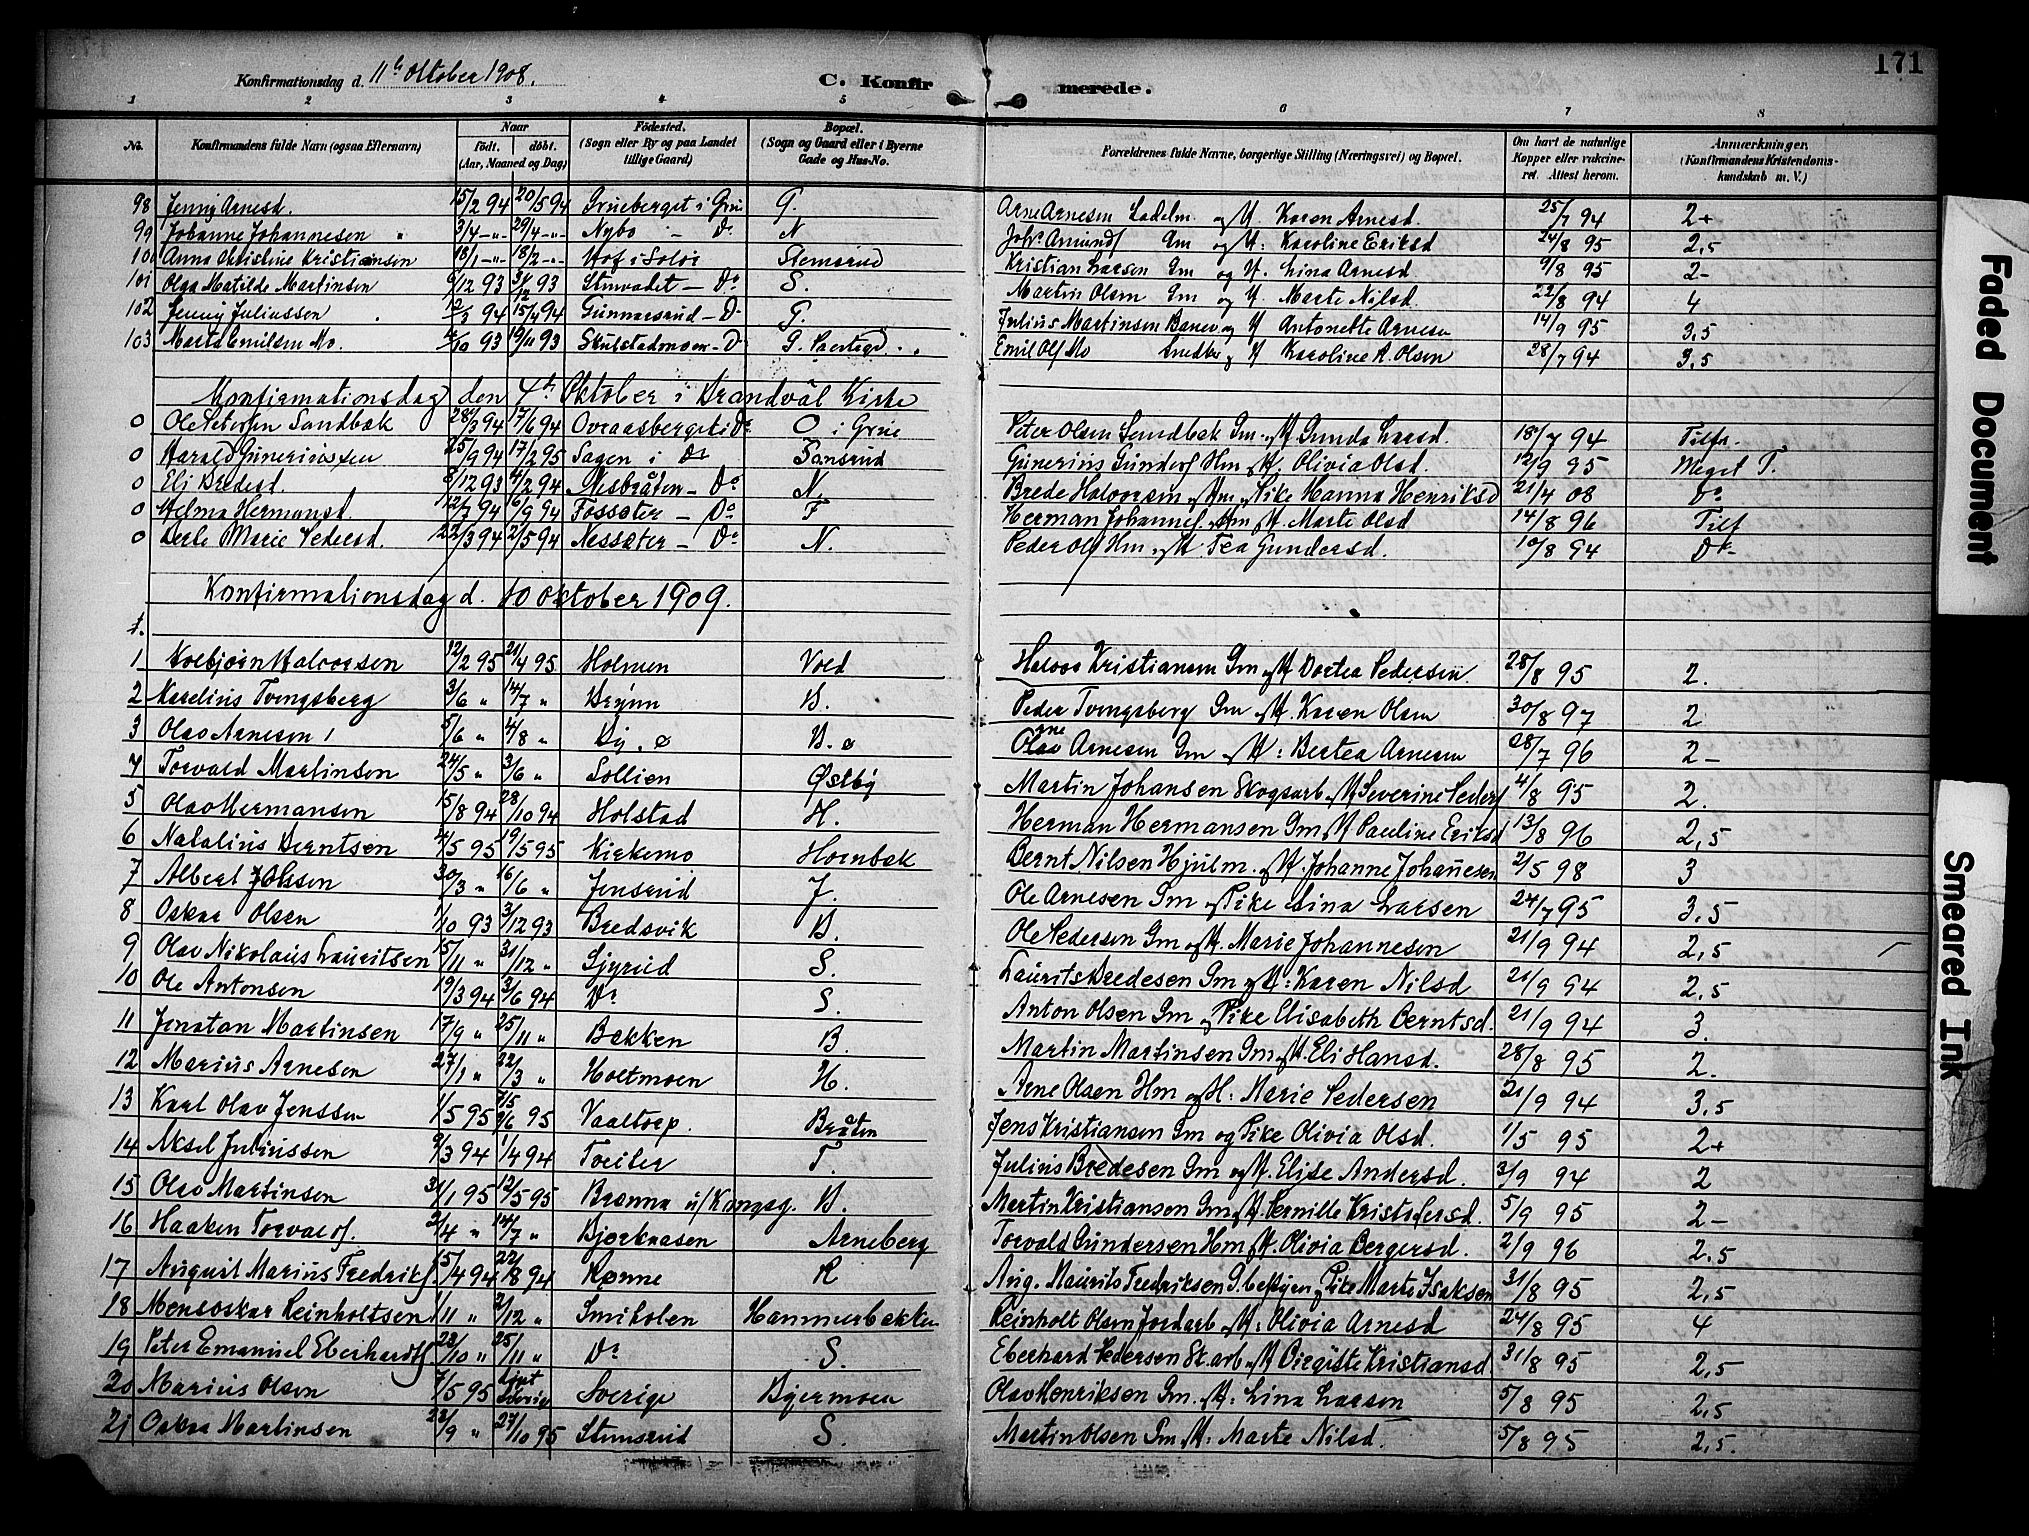 171
Konfirmationsdag d. 11te Oktober 1908. C. Konfirmerede.
1 2 3 4 5 6 7 8
No. Konfirmandens fulde Navn (ogsaa Efternavn) Naar født. døbt. (Aar, Maaned og Dag) Fødested. (Sogn eller By og paa Landet tillige Gaard) Bopæl. (Sogn og Gaard eller i Byerne Gade og Hus-No. Forældrenes fulde Navne, borgerlige Stilling (Næringsvei) og Bopæl. Om havt de naturlige Kopper eller vaccineret. Attest herom. Anmærkninger. (Konfirmandens Kristendomskundskab m. V.)
98 Jenny Arnesd. 15/2 94 20/5 94 Grueberget i Grue G. Arne Arnesen Ladelm. og H. Karen Arnesd. 25/7 94 2+
99 Johanne Johannesen 3/4 -"- 29/4 -"- Nybo - Do N Johs. Amunds Gm og H: Karoline Eriksd 24/8 95 2,5
100 Anna Christine Kristiansen 18/1 -"- 18/2 -"- Hof i Solør Stemsrud Kristian Larsen Gm og H. Lina Arnesd. 9/8 95 2-
101 Olga Matilde Martinsen 6/12 93 31/12 93 - Do S. Martin Olsen Gm og H. Marte Nilsd. 22/8 94 4
102 Jenny Juliussen 12/3 94 15/4 94 Gunnarsrud - Do G. Julius Martinsen Banev og H Antonette Arnesen 14/9 95 3,5
103 Marta Emilsen Mo. /10 93 19/11 93 Skulstadmoen - D G. Emil Ols Mo Smedm og H Karoline A. Olsen 28/7 94 3,5
Konfirmationsdag den 4de Oktober i Brandval Kirke
0 Ole Petersen Sandbæk 28/3 94 17/6 94 Overaasberget i Do O i Grue Peter Olsen Sandbæk Gm. og H Gunda Larsd. 18/7 94 Tilfr.
0 Harald Guneriussen 25/9 94 17/2 95 Sagen i Do Gunerius Gunders Hm og H. Olivia Olsd. 12/9 95 Meget T.
0 Eli Bredesd. 8/12 93 4/2 94 Nesbråten - Do N. Brede Halvorsen Hm og Pike Hanna Henriksd 21/4 08 Do
0 Helma Hermansd. 12/7 94 16/9 94 Fossæter - Do F Herman Johannes. Hm og H. Marte Olsd 14/8 96 Tilf
0 Berte Marie Pedersd. 22/3 94 2/5 94 Nessæter - Do N. Peder Ols Hm. og H Tea Gundersd. 10/8 94 Do-
Konfirmationsdag d. 10 Oktober 1909.
1.
1 Torbjørn Halvorsen 12/2 95 21/4 95 Holmen Vold Halvor Kristiansen Gm og H Dortea Pedersen 28/8 95 2.
2 Karelius Tvengsberg 3/6 " 14/7 " Brynn B. Peder Tvengsberg Gm og H. Karen Olsen 30/8 97 2
3 Olav Arnesen 5/6 " 4/8 " By. ø B. ø Arne Arnesen Gm og H: Bertea Arnesen 28/7 96 2-
4 Torvald Martinsen 24/5 " 3/6 " Lollien Østby Martin Johansen Skogsarb. og H Severine Peders 4/8 95 2.
5 Olav Hermansen 15/8 94 28/10 94 Holstad H. Herman Hermansen Gm og H Pauline Eriksd 13/8 96 2,5
6 Natalius Berntsen 4/5 95 19/5 95 Kirkemo Hornbæk Bernt Nilsen Hjulm. og H. Johanne Johannesen 2/5 98 3
7 Albert Olssen 30/3 " 16/6 " Jensrud J. Ole Arnesen Gm og Pike Lina Larsen 24/7 95 3,5
8 Oskar Olsen 1/10 93 3/12 93 Bredsvik B. Ole Pedersen Gm og H. Marie Johannesen 21/9 94 2,5
9 Olav Nikolaus Lauritsen 15/11 " 31/12 " Gjyrud S. Laurits Bredesen Gm og H: Karen Nilsd 21/9 94 2,5
10 Ole Antonsen 19/3 94 3/6 94 Do S. Anton Olsen Gm og Pike Elisabeth Berntsd. 21/9 94 3.
11 Jonatan Martinsen 17/9 " 25/11 " Bakken B. Martin Martinsen Gm og H. Eli Hansd. 28/8 95 2.
12 Marius Arnesen 27/1 " 22/3 " Holtmoen H. Arne Olsen Hm og H. Marie Pedersen 21/9 94 3,5
13 Karl Olav Jenssen 1/5 95 9/6 95 Vaaltorp. Bråten Jens Kristiansen Gm og Pike Olivia Olsd. 1/5 95 2+
14 Aksel Juliussen 9/3 94 1/4 94 Tveiter T. Julius Bredesen Gm og H. Elise Andersd. 3/9 94 2
15 Olav Martinsen 31/1 95 12/5 95 Brænna u/Kongsg. B. Martin Kristiansen Gm og H. Pernille Kristofersd. 5/9 95 2-
16 Haaken Torvalds. 2/4 " 14/7 " Bjørknasen Arneberg Torvald Gundersen Hm og H. Olivia Bergersd. 2/9 96 2,5
17 August Marius Fredriks. 15/4 94 22/8 94 Rønne R Aug. Maurits Fredriksen G. og Pike Marte Isaksen 31/8 95 2,5
18 Mensoskar Reinholtsen 1/11 " 2/12 " Smikolen Hammerbækken Reinholt Olsen Jordarb og H: Olivia Arnesd 24/8 95 4
19 Peter Emanuel Eberhardts. 23/10 " 25/11 " Do S. Eberhard Pedersen Sk.arb og H Birgitte Kristiansd. 31/8 95 2,5
20 Marius Olsen 7/5 95 Sverige Bjermoen Olav Henriksen Gm. og H. Lina Larsen 5/8 95 2,5
21 Oskar Martinsen 23/9 " 27/10 95 Stemsrud S. Martin Olsen Gm og H: Marte Nilsd. 5/8 95 2,5.
Faded Document
Smeared Ink